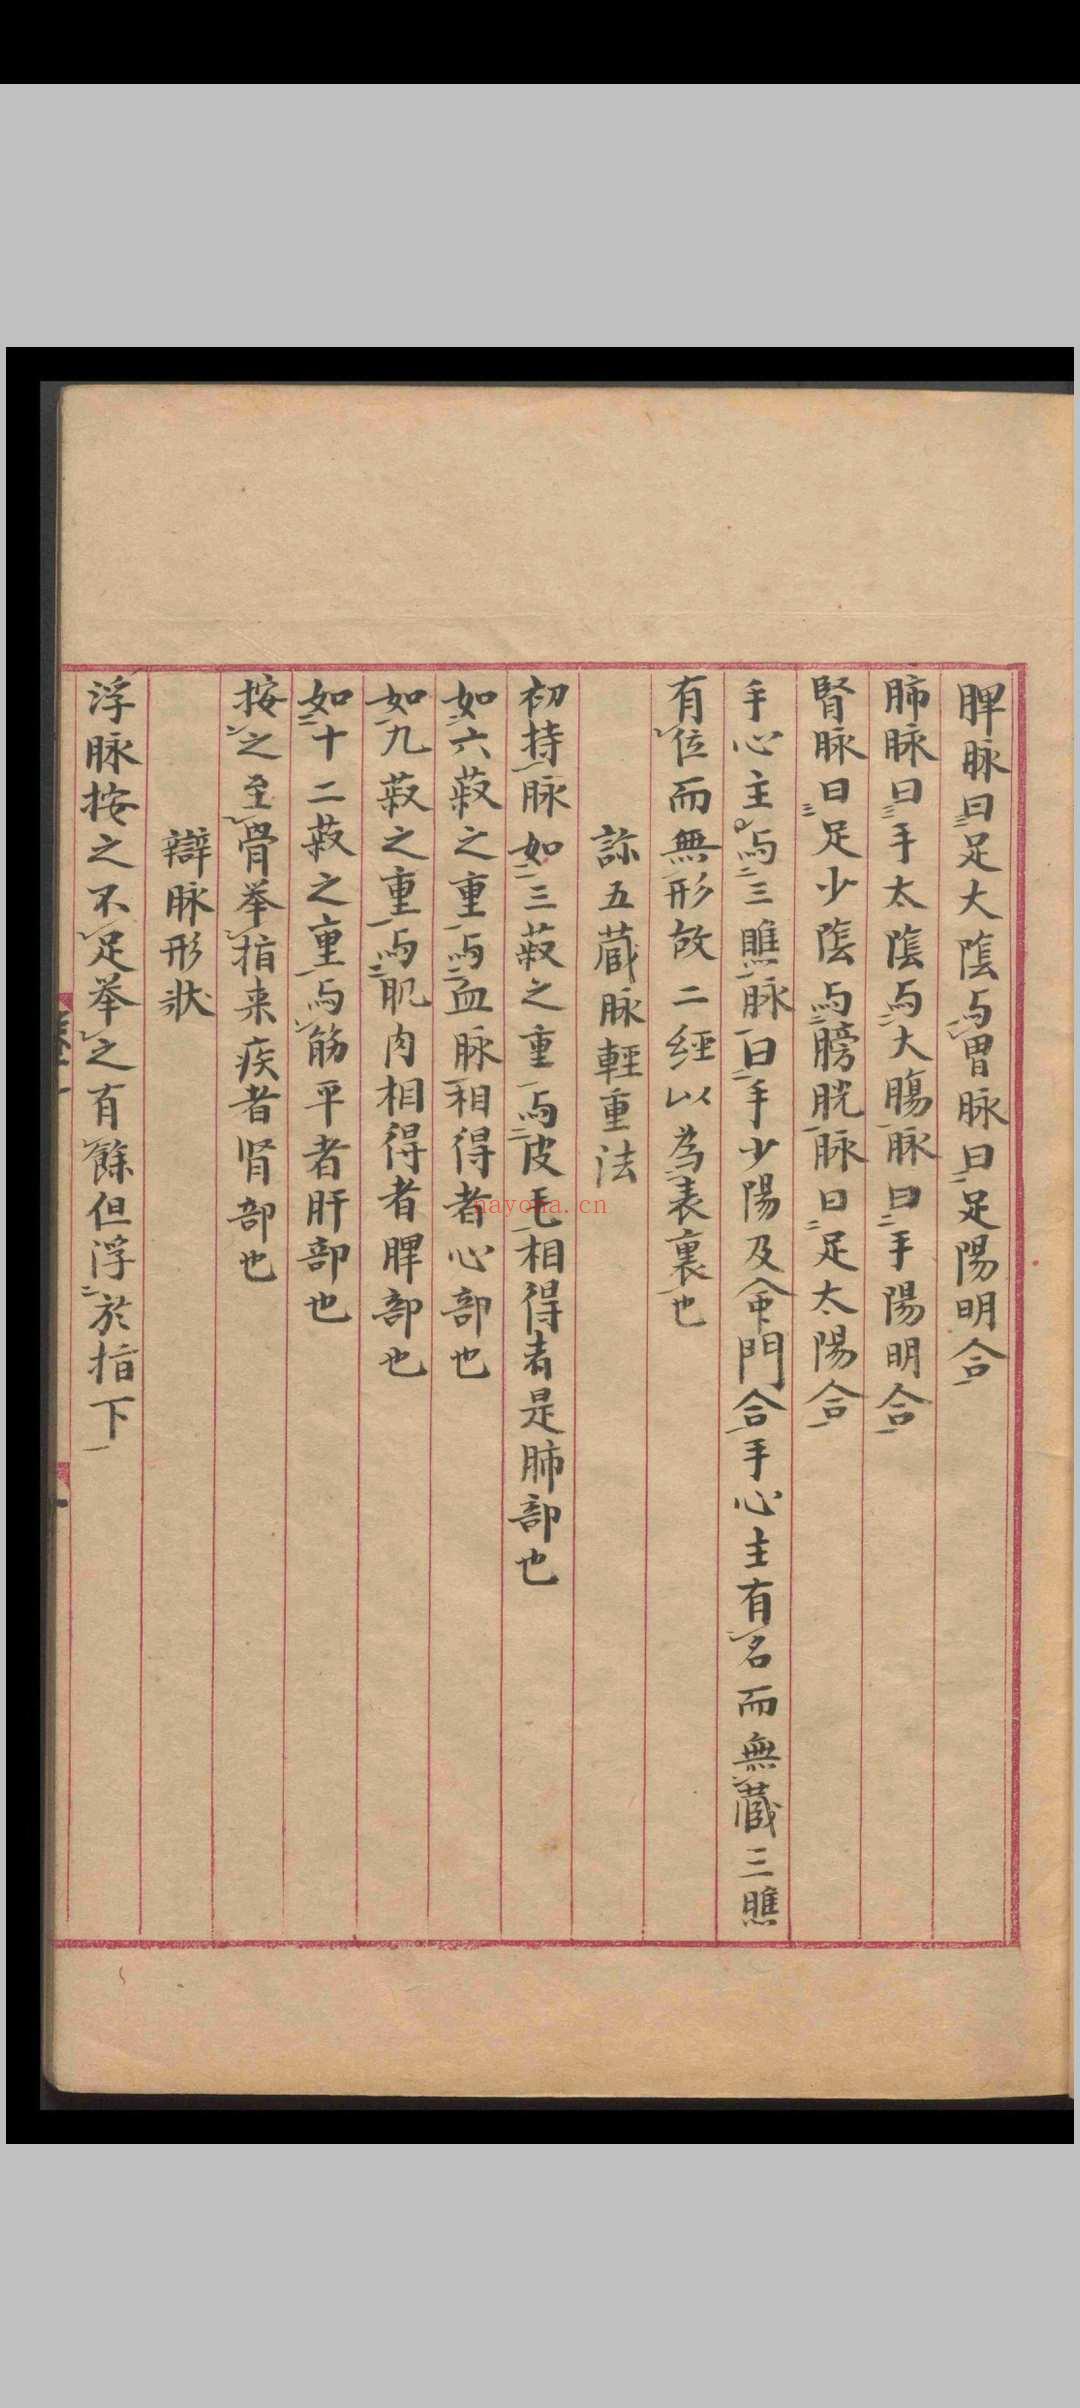 脾脉曰足大陰与胃脉曰足陽明合
肺脉曰手太陰与大腸脉曰手陽明合
腎脉曰足少陰与膀胱脉曰足太陽合
手心主与三膲脉曰手少陽及命門合手心主有名而無蔵三膲
有位而無形故二經以為表裏也
診五蔵脉輕重法
初持脉如三菽之重与皮毛相得者是肺部也
如六菽之重与血脉相得者心部也
如九菽之重与肌肉相得者脾部也
如十二菽之重与筋平者肝部也
按之至骨举指来疾者肾部也
辯脉形状
浮脉按之不足举之有餘但浮於指下
nayona.cn